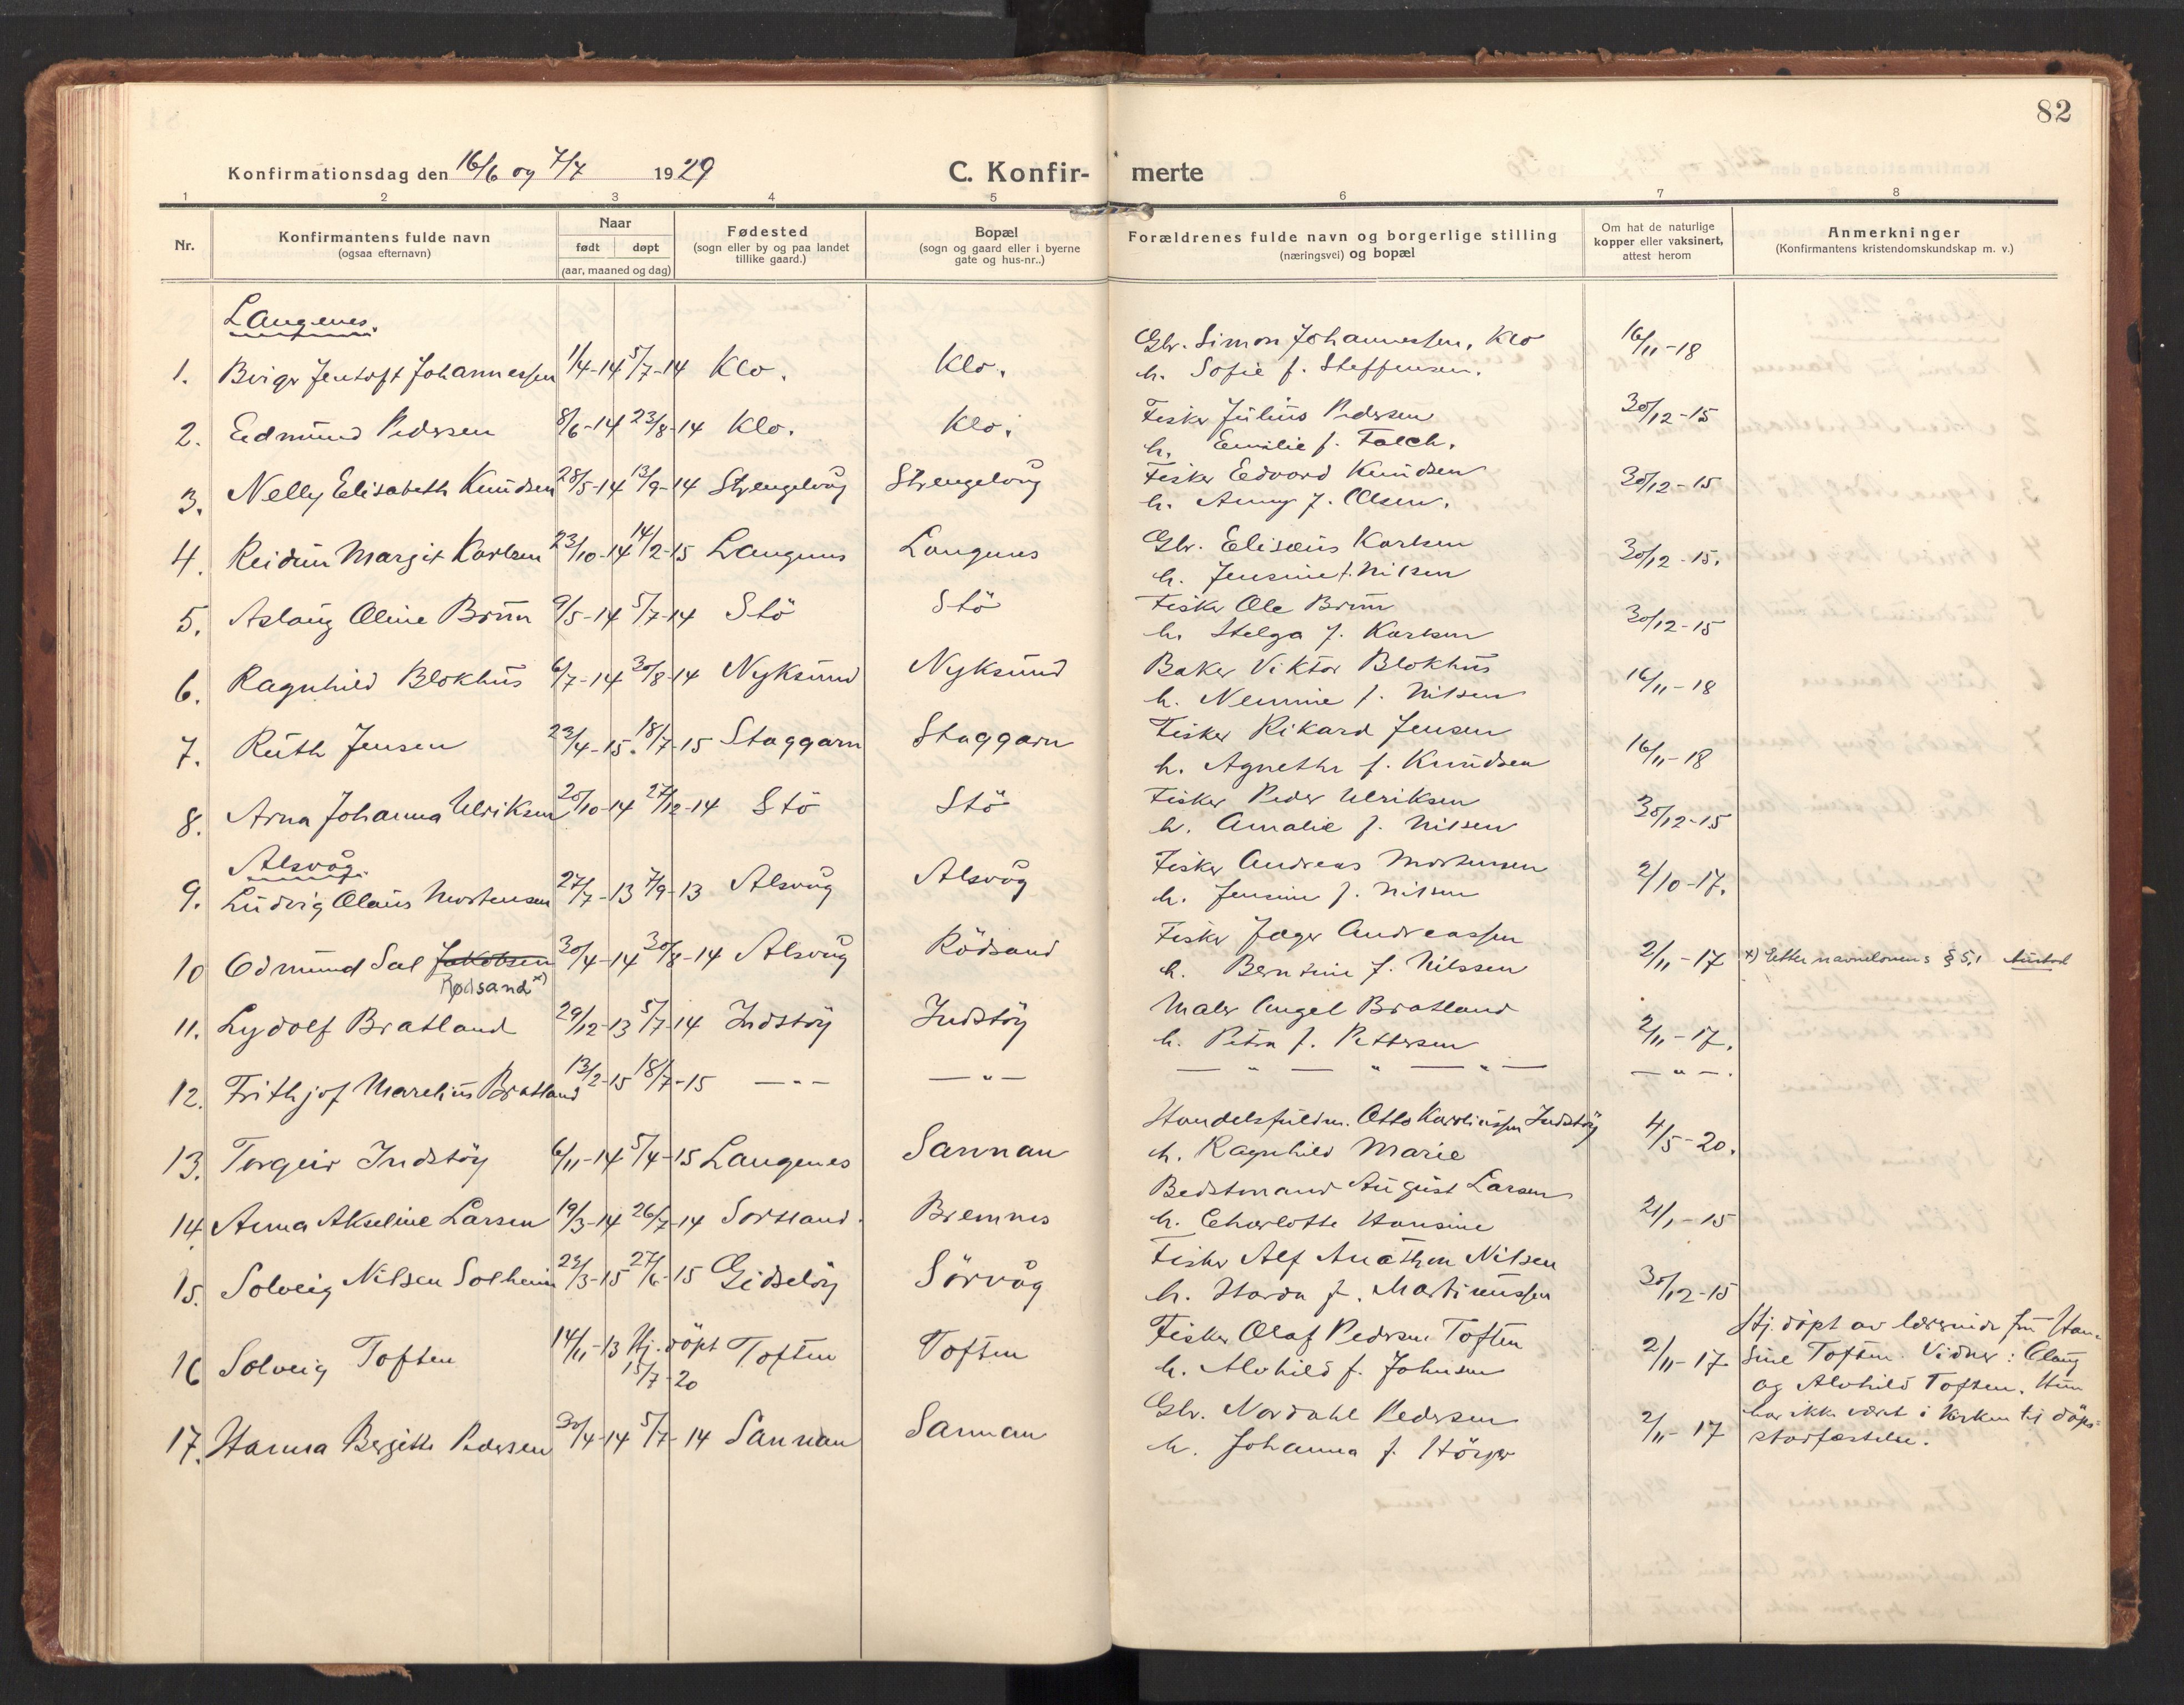 82
Konfirmationsdag den 16/6 og 7/7 1929 C. Konfir- merte
1 2 3 4 5 6 7 8
Nr. Konfirmantens fulde navn (ogsaa efternavn) Naar født døpt (aar, maaned og dag) Fødested (sogn eller by og paa landet tillike gaard.) Bopæl (sogn og gaard eller i byerne gate og hus-nr..) Forældrenes fulde navn og borgerlige stilling (næringsvei) og bopæl Om hat de naturlige kopper eller vaksinert, attest herom Anmerkninger (Konfirmantens kristendomskundskap m. v.)
Langenes.
1. Birger Jentoft Johannessen 1/4-14 5/7-14 Klo. Klo. Gbr. Simon Johannessen, Klo 16/11-18
h. Sofie f. Steffensen.
2. Edmund Pedersen 8/6-14 23/8-14 Klo. Klo. Fisker Julius Pedersen 30/12-15
h. Emilie f. Falch.
3. Nelly Elisabeth Knudsen 28/5-14 13/9-14 Strengelvåg Strengelvåg Fisker Edvard Knudsen 30/12-15
h. Anny f. Olsen.
4. Reidun Margit Karlsen 23/10-14 14/2-15 Langenes Langenes Gbr. Elisæus Karlsen 30/12-15.
h. Jensine f. Nilsen
5. Aslaug Oline Brun 9/5-14 5/7-14 Stö Stö Fisker Ole Brun 30/12-15
h. Helga f. Karlsen
6. Ragnhild Blokhus 6/7-14 30/8-14 Nyksund Nyksund Baker Viktor Blokhus 16/11-18
h. Nemmie f. Nilsen
7. Ruth Jensen 23/4-15. 18/7-15 Skaggarn Skaggarn Fisker Rikard Jensen 16/11-18
h. Agnethe f. Knudsen
8. Arna Johanna Ulriksen 20/10-14 27/12-14 Stö Stö Fisker Peder Ulriksen 30/12-15
h. Amalie f. Nilsen
Alsvåg.
9. Ludvig Olaus Mortensen 27/7-13 7/9-13 Alsvåg Alsvåg Fisker Andreas Mortensen 2/10-17.
h. Jensine f. Nilsen
10 Odmund Sal Jakobsen 30/4-14 30/8-14 Alsvåg Rödsand Fisker Jæger Andreassen 2/11-17 x) Etter navnelovens § 5,1
Rødsand x) h. Berntine f. Nilssen
11. Lydolf Bratland 29/12-13 5/7-14 Indstöy Indstöy Maler Angel Bratland 2/11-17.
h. Petra f. Pettersen
12. Frithjof Marelius Bratland 13/2-15 18/7-15 — " — — " — — " — " — " — — " —.
13. Torgeir Indstöy 6/11-14 5/4-15 Langenes Sannan Handelsfuldm. Otto Karoliussen Indstöy 4/5-20.
h. Ragnhild Marie
14. Anna Akseline Larsen 19/3-14 26/7-14 Sortland. Bremnes Bedstmand August Larsen 21/1-15
h. Charlotte Hansine
15. Solveig Nilsen Solheim 22/3-15 27/6-15 Gidselöy Sörvåg Fisker Alf Anathon Nilsen 30/12-15
h. Harda f. Martinussen
16 Solveig Toften 14/11-13 Hj. döpt 15/7-20 Toften Toften Fisker Olaf Pedersen Toften 2/11-17 Hj. döpt av lærerinde frü Han-
h. Alvhild f. Johnsen sine Toften. Vidner: Olaug
og Alvhild Toften. Hun
17. Hanna Bergitte Pedersen 30/4-14 5/7-14 Sannan Sannan Gbr. Nordahl Pedersen 2/11-17 har ikke været i kirken til döps-
h. Johanna f. Hörger stadfæstelse.